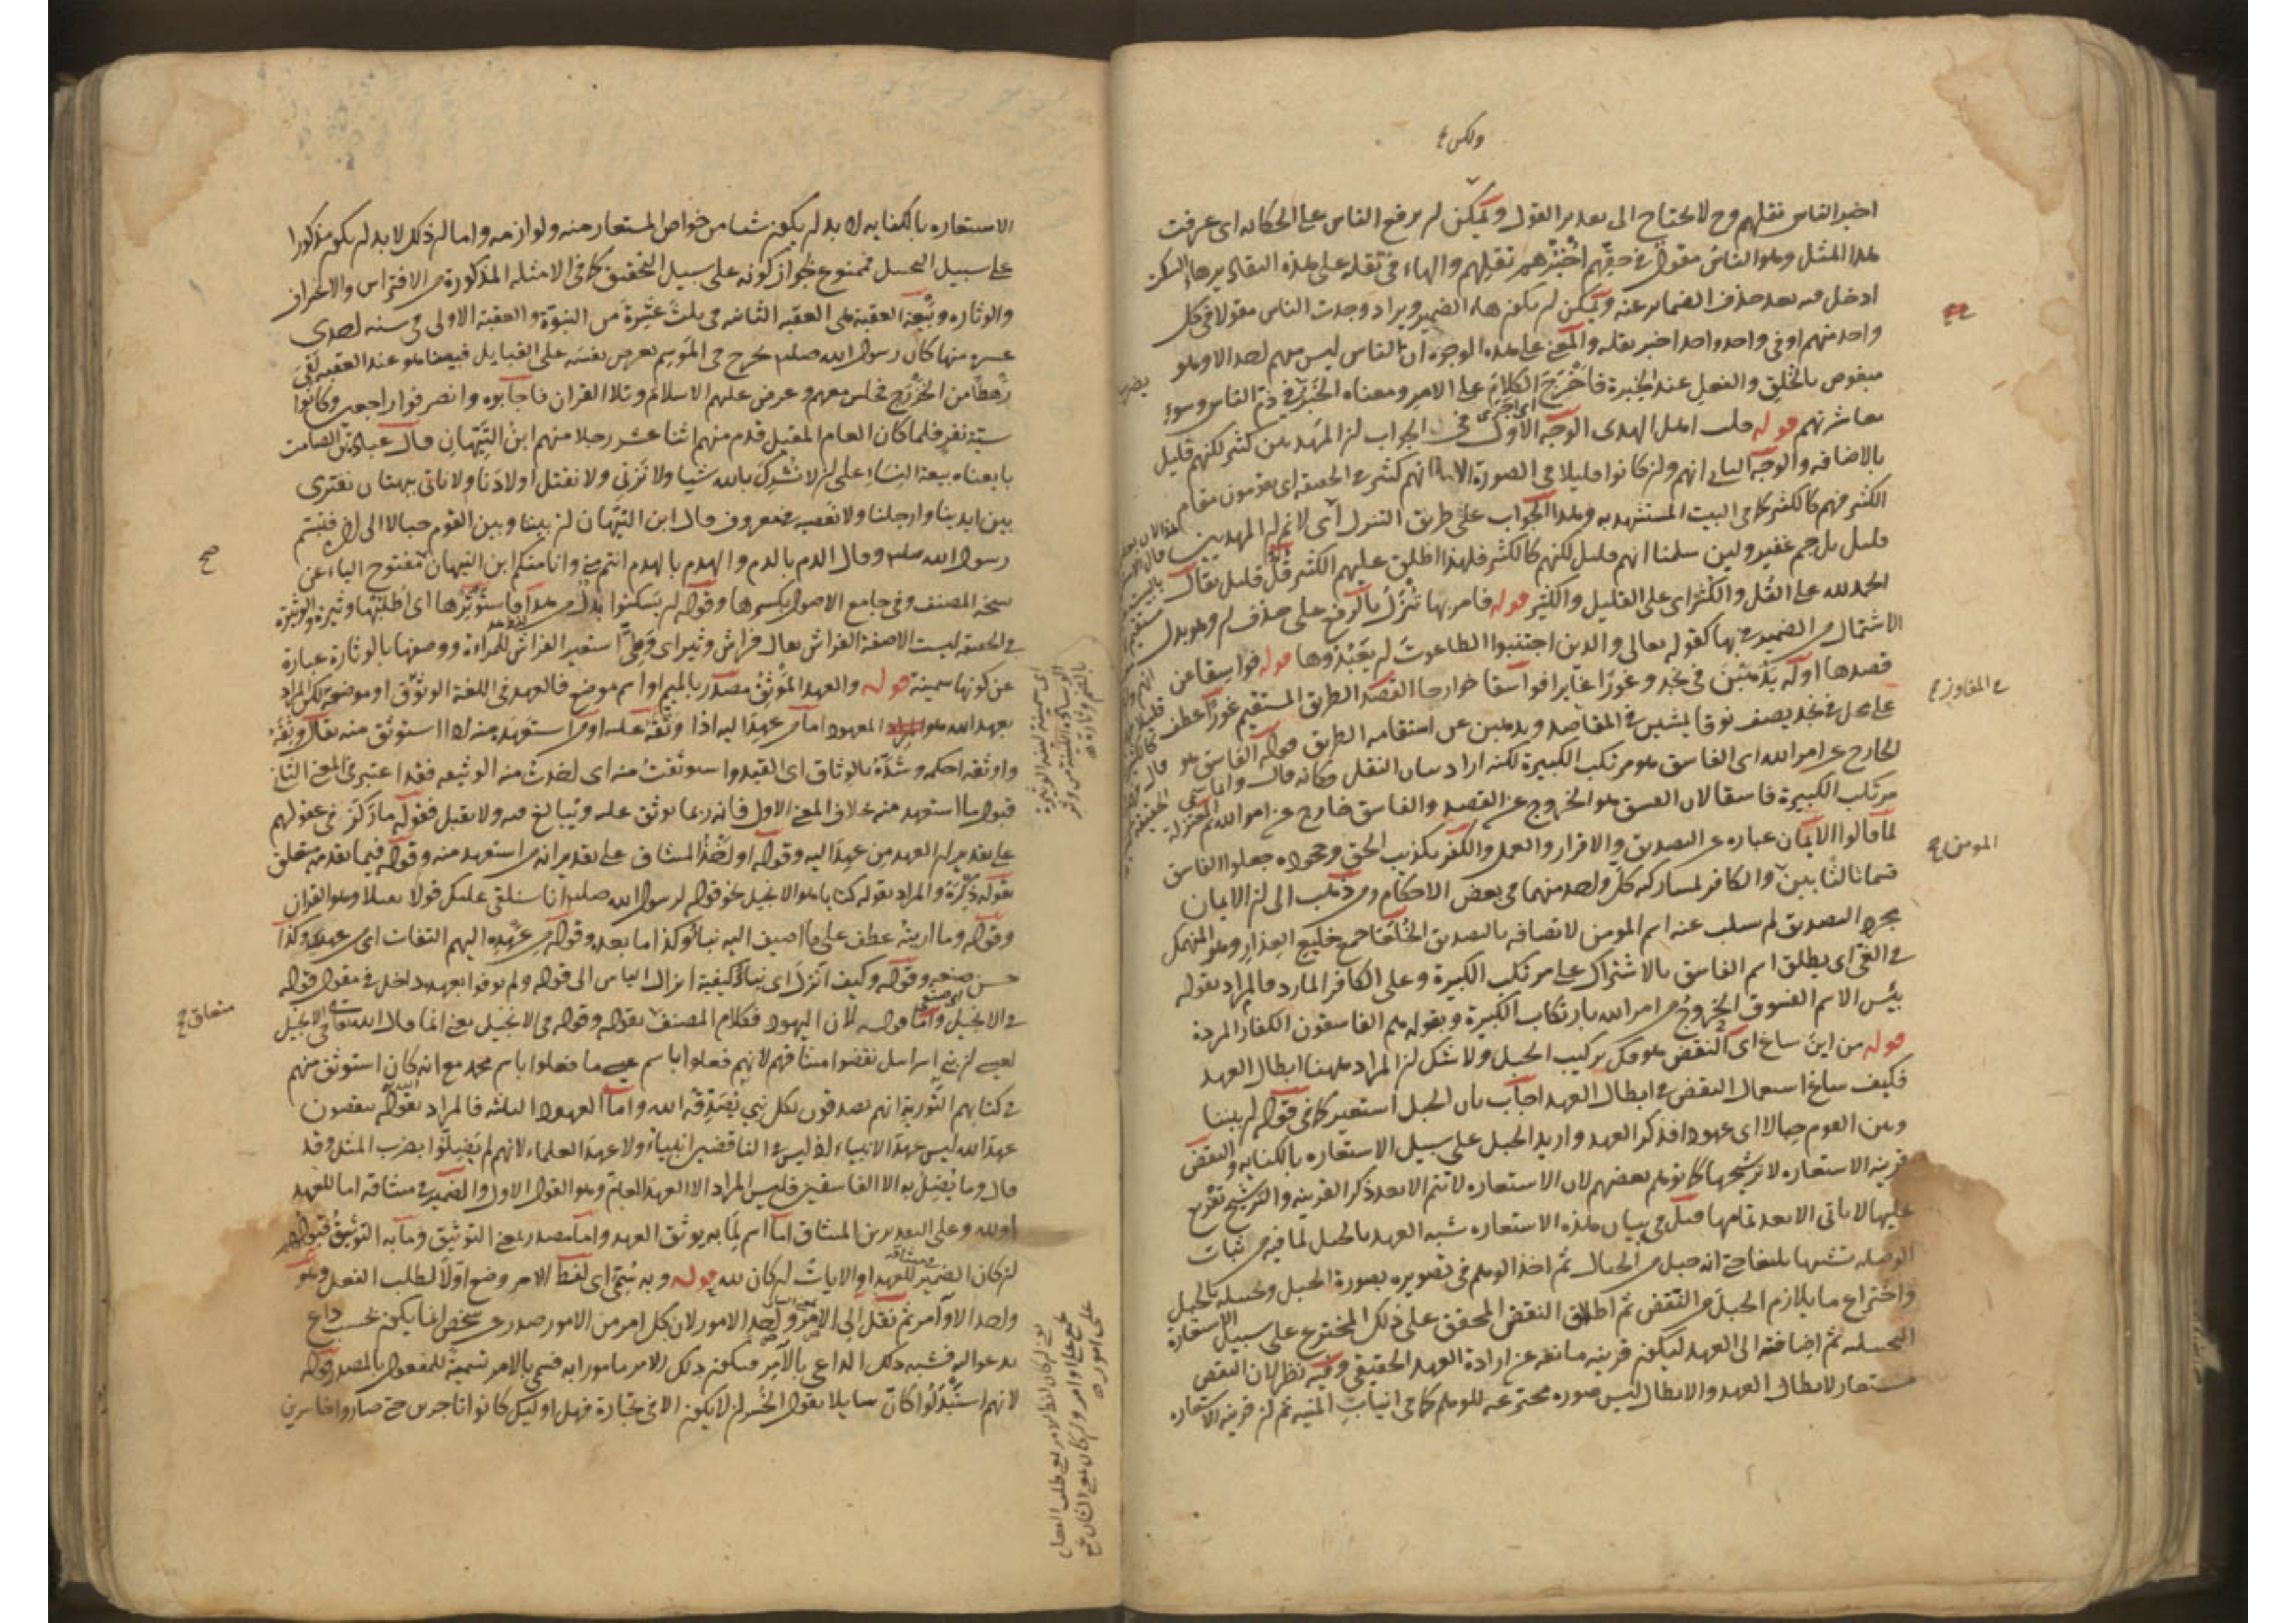 ولكن
اخبر الناس نقلهم وح لا يحتاج الى تقدير القول ويمكن ان يرفع الناس على الحكاية اى عرفت
هذا المثل وهو الناس مقول فى حقهم اخبرهم تقلهم والهاء فى تقله على هذه التقادير هاء السكت
ادخل فيه بعد حذف الضمائر عنه ويمكن ان يكون هاء الضمير ويراد وجدت الناس مقولا فى كل
واحد منهم او فى واحد واحد اخبر تقله والمعنى على هذه الوجوه ان الناس ليس منهم احد الا وهو
مبغوض بالخلق والفعل عند الخبرة فاخرج الكلام على الامر ومعناه الخبر فى ذم الناس وسوء
معاشرتهم قوله قلت اهل الهدى الوجه الاول فى الجواب ان المهديين كثير لكنهم قليل
بالاضافة والوجه الثانى انهم وان كانوا قليلا فى الصورة الا انهم كثير فى الحقيقة اى يقومون مقام
الكثير فهم كالكثير كما فى البيت المستشهد به وهذا الجواب على طريق التنزل اى لا نم ان المهديين
قليل بل جم غفير ولئن سلمنا انهم قليل لكنهم كالكثير فلهذا اطلق عليهم الكثير قل قليل يقال
الحمد لله على القل والكثر اى على القليل والكثير قوله فامر بها تنزل بالرفع على حذف ان وهو بدل
الاشتمال من الضمير فى بها كقوله تعالى والذين اجتنبوا الطاغوت ان يعبدوها قوله فواسقا عن
قصدها اوله يذهبن فى نجد وغورا غائرا فواسقا خوارجا القصد الطريق المستقيم غورا عطف
على محل فى نجد يصف نوقا يمشين فى المفاوز ويذهبن عن استقامة الطريق قوله الفاسق هو
الخارج عن امر الله اى الفاسق هو مرتكب الكبيرة لكنه اراد بيان النقل فكانه قال وانما سمى
مرتكب الكبيرة فاسقا لان الفسق هو الخروج عن القصد والفاسق خارج عن امر الله ثم المعتزلة
لما قالوا الايمان عبارة عن التصديق والاقرار والعمل والكفر تكذيب الحق وجحوده جعلوا الفاسق
قسما ثالثا بين والكافر لمشاركة كل واحد منهما فى بعض الاحكام ومن ذهب الى ان الايمان
مجرد التصديق لم يسلب عنه اسم المومن لاتصافه بالتصديق الخلعا جمع خليع العذار وهو المنهمك
فى الغى اى يطلق اسم الفاسق بالاشتراك على مرتكب الكبيرة وعلى الكافر المارد فالمراد بقوله
بئس الاسم الفسوق الخروج عن امر الله بارتكاب الكبيرة وبقوله هم الفاسقون الكفار المردة
قوله من اين ساغ اى النقض هو فك تركيب الحبل ولا شك ان المراد ههنا ابطال العهد
فكيف ساغ استعمال النقض فى ابطال العهد اجاب بان الحبل استعير كما فى قوله ان بيننا
وبين القوم حبالا اى عهودا فذكر العهد واريد الحبل على سبيل الاستعارة بالكناية والنقض
قرينة الاستعارة لا ترشيحها كما توهم بعضهم لان الاستعارة لا تتم الا بعد ذكر القرينة والترشيح تفريع
عليها لا ياتى الا بعد تمامها قيل فى بيان هذه الاستعارة شبه العهد بالحبل لما فيه من ثبات
الوصلة تشبيها بليغا حتى انه حبل من الحبال ثم اخذ الوهم فى تصويره بصورة الحبل وتخييله بالحبل
واختراع ما يلازم الحبل من النقض ثم اطلاق النقض المحقق على ذلك المخترع على سبيل الاستعارة
التخييلية ثم اضافته الى العهد ليكون قرينة مانعة عن ارادة العهد الحقيقى وفيه نظر لان النقض
مستعار لابطال العهد والابطال ليس صورة مخترعة للوهم كما فى انياب المنية ثم ان قرينة الاستعارة
فى المفاوز
المومن
الاستعارة بالكناية لا بد ان يكون شيئا من خواص المستعار منه ولوازمه واما ان ذلك لا بد ان يكون مذكورا
على سبيل التخييل فممنوع لجواز كونه على سبيل التحقيق كما فى الامثلة المذكورة من الافتراس والاغتراف
والوثارة وبيعة العقبة هى العقبة الثانية فى ثلث عشرة من النبوة والعقبة الاولى فى سنة احدى
عشرة منها كان رسول الله صلعم يخرج فى الموسم يعرض نفسه على القبايل فبينا هو عند العقبة لقى
رهطا من الخزرج فجلس معهم وعرض عليهم الاسلام وتلا القران فاجابوه وانصرفوا راجعين وكانوا
ستة نفر فلما كان العام المقبل قدم منهم اثنا عشر رجلا منهم ابن التيهان قال عبادة بن الصامت
بايعناه بيعة النساء على ان لا نشرك بالله شيا ولا نزنى ولا نقتل اولادنا ولا ناتى ببهتان نفترى
بين ايدينا وارجلنا ولا نعصيه فى معروف قال ابن التيهان ان بيننا وبين القوم حبالا الى اخره فتبسم
رسول الله صلعم وقال الدم بالدم والهدم بالهدم انتم منى وانا منكم ابن التيهان مفتوح الياء عن
نسخة المصنف وفى جامع الاصول بكسرها وقوله ان يسكتوا بدل من هذا فاستوثرها اى اطلبها وثيرة والوثيرة
فى الحقيقة ليست الا صفة الفراش يقال فراش وثير اى وطى استعير الفراش للمراءة ووصفها بالوثارة عبارة
عن كونها سمينة قوله والعهد الموثق مصدر بالميم او اسم موضع فالعهد فى اللغة الوثوق او موضعه لكن المراد
بعهد الله هو المعهود اما من عهد اليه اذا وثقه عليه او من استعهد منه اذا استوثق منه يقال وثقه
واوثقه احكمه وشده بالوثاق اى القيد واستوثقت منه اى اخذت منه الوثيقة فقد اعتبر فى المعنى الثانى
قبول ما استعهد منه بخلاف المعنى الاول فانه ربما يوثق عليه ويبالغ فيه ولا يقبل فقوله ما ركز فى عقولهم
على تقدير ان العهد من عهد اليه وقوله او اخذ الميثاق على تقدير انه من استعهد منه وقوله فيما تقدمه متعلق
بقوله ذكره والمراد بقوله كتابا هو الانجيل نحو قوله لرسول الله صلعم انا سنلقى عليك قولا ثقيلا وهو القران
وقوله وما اريته عطف على ما اضيف اليه نبا وكذا ما بعده وقوله من عهده اليهم التفات اى من عهدى وكذا
حسن صنعه وقوله وكيف انزل اى نبا كيفية انزال الباس الى قوله ولم يوفوا بعهده داخل فى مقول قوله
فى الانجيل واما قوله لان اليهود فكلام المصنف بقوله وقوله فى الانجيل يعنى انما قال الله تعالى فى الانجيل
لعيسى ان بنى اسرائيل نقضوا ميثاقهم لانهم فعلوا باسم عيسى ما فعلوا باسم محمد مع انه كان استوثق منهم
فى كتابهم التورية انهم يصدقون بكل نبى يصدقه الله واما العهود الثلثة فالمراد بقوله ينقضون
عهد الله ليس عهد الانبياء اذ ليس فى الناقضين انبياء ولا عهد العلماء لانهم لم يضلوا بضرب المثل وقد
قال وما يضل به الا الفاسقين فليس المراد الا العهد العام وهو القول الاول والضمير فى ميثاقه اما للعهد
او لله وعلى التقديرين الميثاق اما اسم لما به يوثق العهد واما مصدر بمعنى التوثيق وما به التوثيق قبولهم
ان كان الضمير للعهد او الايات ان كان لله قوله وبه سمى اى لفظ الامر وضع اولا لطلب الفعل وهو
واحد الاوامر ثم نقل الى الامر واحد الامور لان كل امر من الامور صدر عن شخص انما يكون بحسب داع
يدعو اليه فشبه ذلك الداعى بالآمر فيكون ذلك الامر مامورا به فسمى بالامر تسمية للمفعول بالمصدر قوله
لانهم استبدلوا كان سايلا يقول الخسر ان لا يكون الا فى تجارة فهل اوليك كانوا تاجرين حتى صاروا خاسرين
صح
متعلق